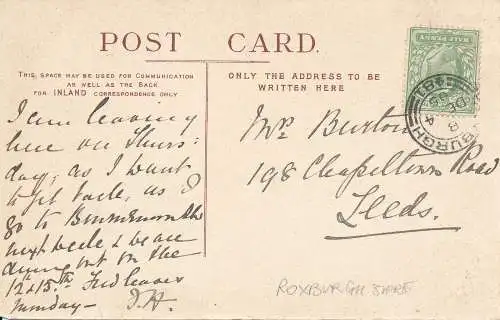 POST CARD.
THIS SPACE MAY BE USED FOR COMMUNICATION
AS WELL AS THE BACK
FOR INLAND CORRESPONDENCE ONLY
ONLY THE ADDRESS TO BE
WRITTEN HERE
HALF PENNY
BURGH
I am leaving
here on Thurs-
day, as I want
to get back, as I
go to Bournemouth
next week & we are
dining out on the
12 & 15th. Fred leaves
Monday—
Mrs Burton
198 Chapeltown Road
Leeds.
ROXBURGHSHIRE